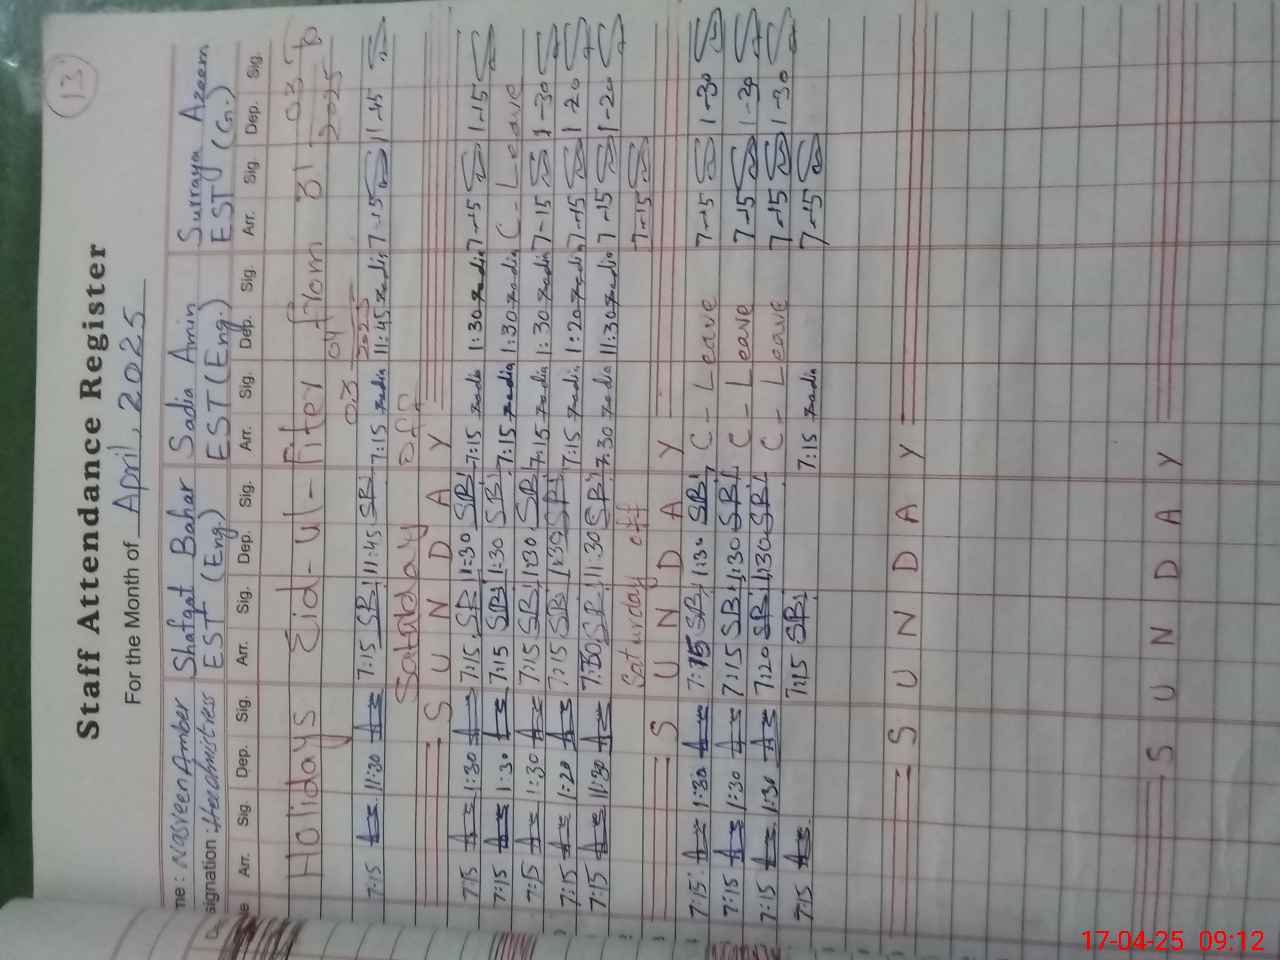 13
Staff Attendance Register
For the Month of April, 2025
me: Nasreen Amber Shafqat Bahar Sadia Amin Surraya Azeem
signation: Headmistress EST (Eng.) EST (Eng.) EST (G.)
Arr. Sig. Dep. Sig. Arr. Sig. Dep. Sig. Arr. Sig. Dep. Sig. Arr. Sig. Dep. Sig.
Holidays Eid-ul-Fiter from 31-03 to
2025
03-04
2025
7:15 11:30 7:15 SB 11:45 SB 7:15 11:45 7-15 11-45
Satadday off
SUNDAY
7:15 1:30 7:15 SB 1:30 SB 7:15 1:30 7-15 1-15
7:15 1:30 7:15 SB 1:30 SB 7:15 1:30 C - Leave
7:15 1:30 7:15 SB 1:30 SB 7:15 1:30 7-15 1-30
7:15 1:20 7:15 SB 1:30 SB 7:15 1:20 7-15 1-20
7:15 11:30 7:30 SB 11:30 SB 7:30 11:30 7-15 1-20
Saturday off 7-15
SUNDAY
7:15 1:30 7:15 SB 1:30 SB C - Leave 7-15 1-30
7:15 1:30 7:15 SB 1:30 SB C - Leave 7-15 1-30
7:15 1:30 7:20 SB 1:30 SB C - Leave 7-15 1-30
7:15 7:15 SB 7:15 7-15
SUNDAY
SUNDAY
17-04-25 09:12